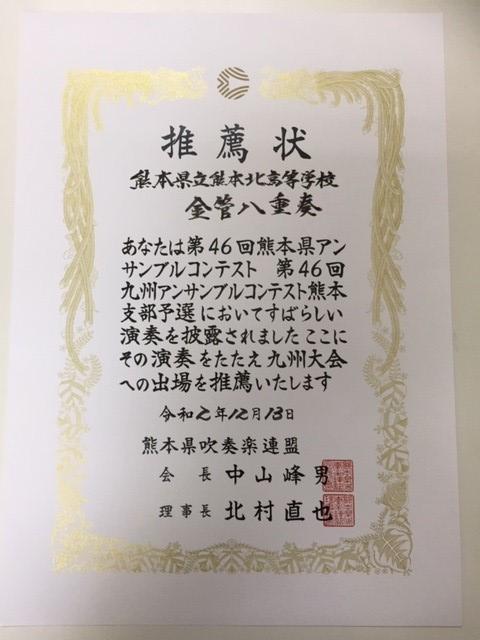 推薦状
熊本県立熊本北高等学校
金管八重奏
あなたは第46回熊本県アン
サンブルコンテスト 第46回
九州アンサンブルコンテスト熊本
支部予選においてすばらしい
演奏を披露されました ここに
その演奏をたたえ九州大会
への出場を推薦いたします
令和2年12月13日
熊本県吹奏楽連盟
会長 中山峰男
理事長 北村直也